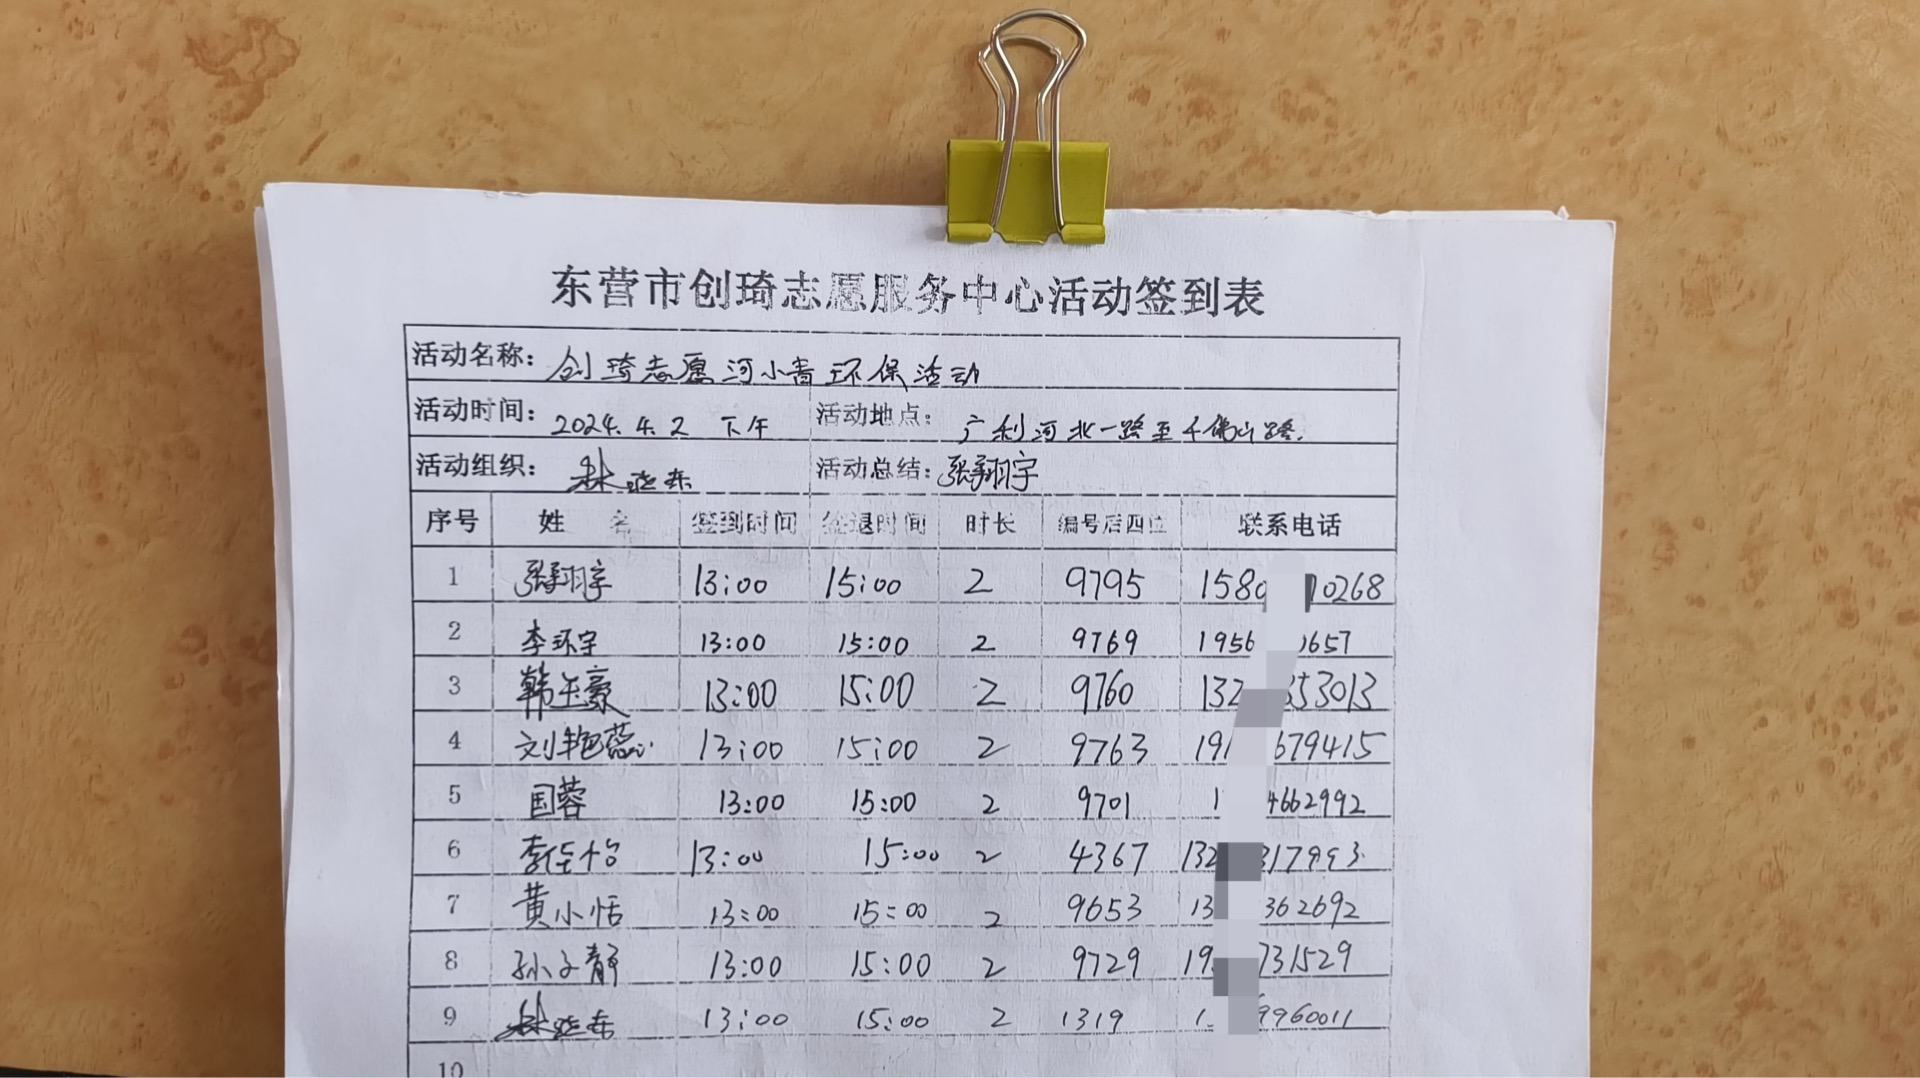 东营市创琦志愿服务中心活动签到表
活动名称：创琦志愿河小青环保活动
活动时间：2024.4.2 下午 活动地点：广利河北一路至千佛山路.
活动组织：林晓东 活动总结：张翔宇
序号 姓 名 签到时间 签退时间 时长 编号后四位 联系电话
1 张翔宇 13:00 15:00 2 9795 158 10268
2 李环宇 13:00 15:00 2 9769 1956 657
3 韩玉豪 13:00 15:00 2 9760 132 53013
4 刘艳蕊 13:00 15:00 2 9763 19 679415
5 国蓉 13:00 15:00 2 9701 1 4662992
6 李 怡 13:00 15:00 2 4367 132 317993
7 黄小恬 13:00 15:00 2 9653 13 362692
8 孙子静 13:00 15:00 2 9729 19 731529
9 林晓东 13:00 15:00 2 1319 1 9960011
10